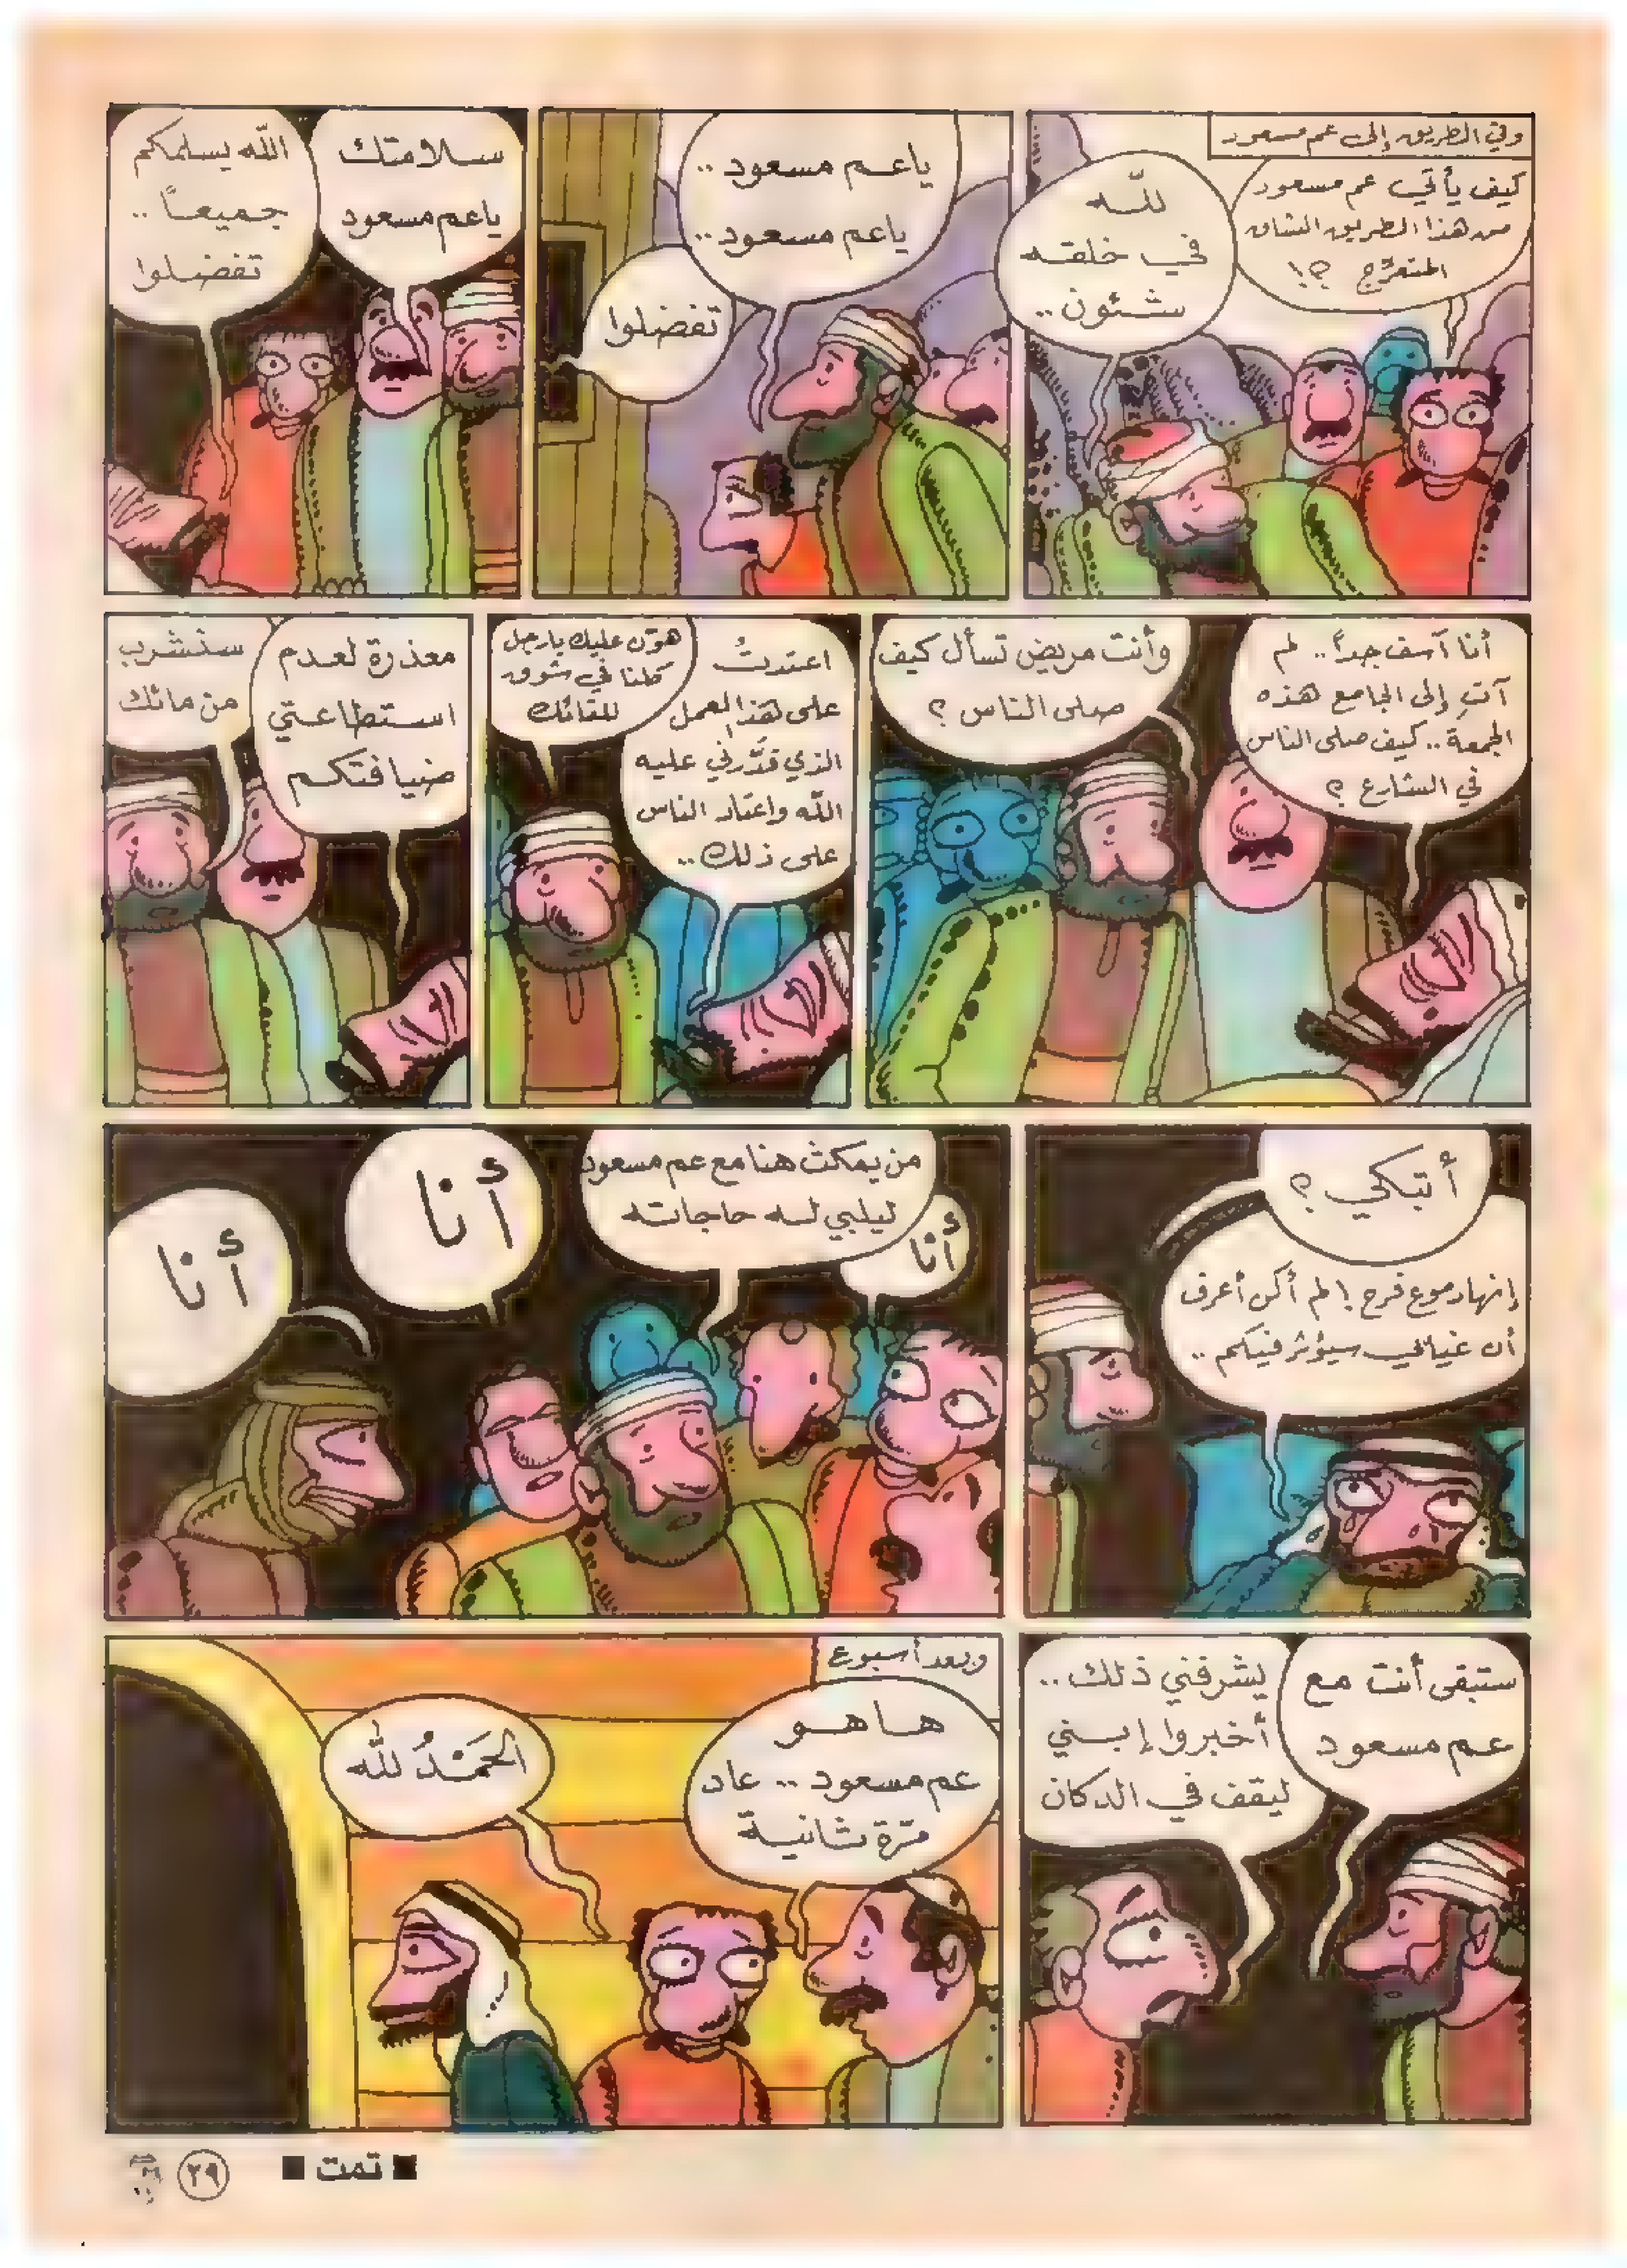 وفي الطريق إلى عم مسعود
كيف يأتي عم مسعود
من هذا الطريق الشاق
المتعرّج ؟!
للّه
في خلقه
شئون ..
ياعم مسعود ..
ياعم مسعود ..
تفضلوا
سلامتك
ياعم مسعود
اللّه يسلمكم
جميعاً ..
تفضلوا
أنا آسف جداً .. لم
آتِ إلى الجامع هذه
الجمعة .. كيف صلى الناس
في الشارع ؟
وأنت مريض تسأل كيف
صلى الناس ؟
اعتدتُ
على هذا العمل
الذي قدَّرني عليه
اللّه واعتاد الناس
على ذلك ..
هوّن عليك يا رجل
كلنا في شوق
للقائك
معذرة لعدم
استطاعتي
ضيافتكم
سنشرب
من مائك
أتبكي ؟
إنها دموع فرح ! لم أكن أعرف
أن غيابي سيؤثر فيكم ..
من يمكث هنا مع عم مسعود
ليلبي له حاجاته
أنا
أنا
أنا
ستبقى أنت مع
عم مسعود
يشرفني ذلك ..
أخبروا إبني
ليقف في الدكان
وبعد أسبوع
ها هو
عم مسعود .. عاد
مرّة ثانية
الحَمْدُ لله
■ تمت ■
٢٩